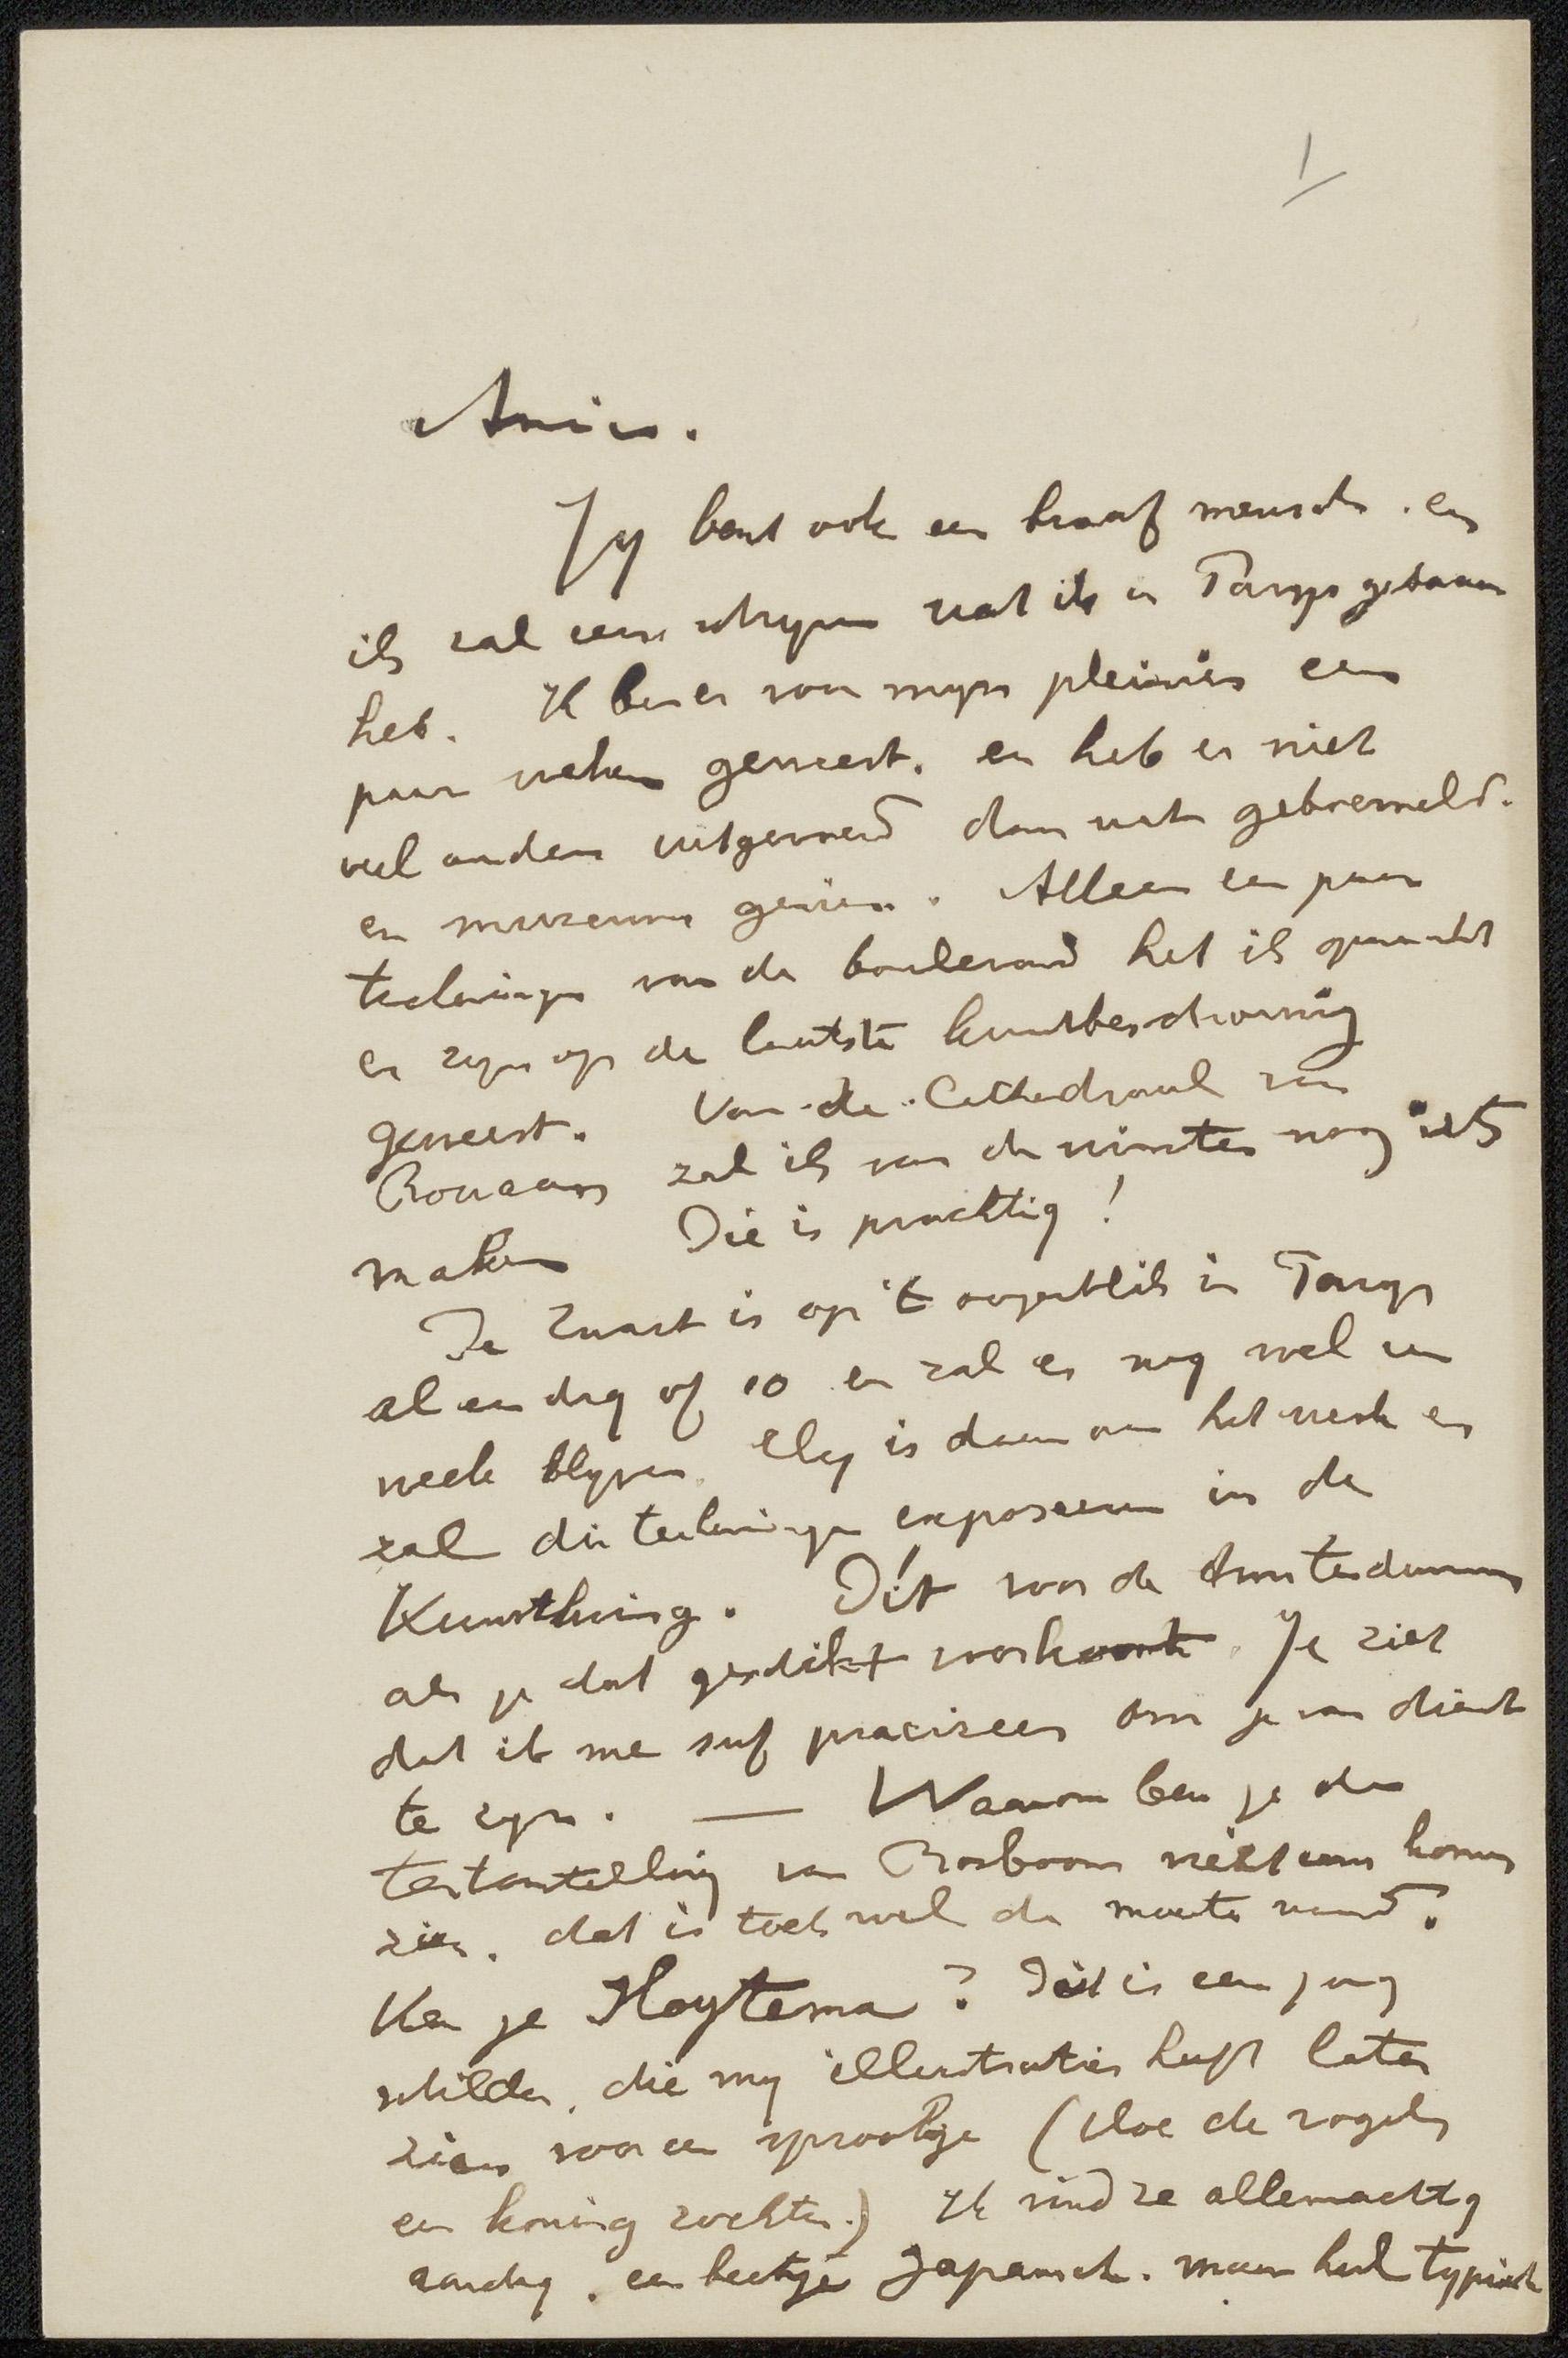 1
Amice.
Jy bent ook een braaf mensch. en
ik zal eens schryven wat ik in Parys gedaan
heb. Ik ben er voor myn pleizier een
paar weken geweest. en heb er niet
veel anders uitgevoerd dan wat geboemeld.
en muzeums gezien. Alleen een paar
teekeningen van de boulevard heb ik gemaakt
er zyn op de laatste kunstbeschouwing
geweest. Van de Cathedraal van
Rouaan zal ik van de winter nog iets
maken Die is prachtig!
De Zwart is op 't oogenblik in Parys
al een dag of 10 en zal er nog wel een
week blyven. is daar aan het werk en
zal die teekeningen exposeeren in de
Kunstkring. Dit voor de Amsterdammer
als je dat geschikt voorkomt. Je ziet
dat ik me suf praczieer om je van dienst
te zyn. — Waarom ben je de
tentoonstelling van Bosboom niet eens komen
zien. dat is toch wel de moeite waard.
Ken je Hoytema? Dit is een jong
schilder, die my illustraties heeft laten
zien voor een sprookje (Hoe de vogels
een koning zochten.) Ik vind ze allemachtig
aardig. een beetje Japansch. maar heel typisch